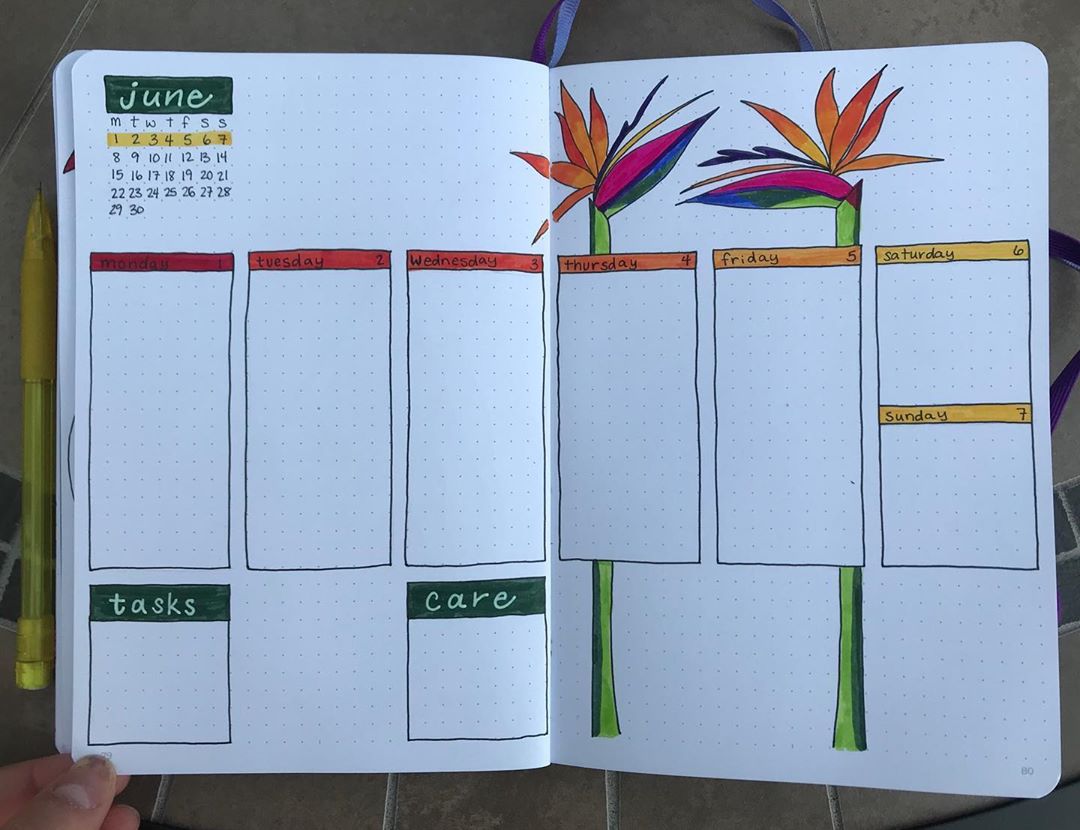 june
m t w t f s s
1 2 3 4 5 6 7
8 9 10 11 12 13 14
15 16 17 18 19 20 21
22 23 24 25 26 27 28
29 30
monday 1
tuesday 2
Wednesday 3
thursday 4
friday 5
saturday 6
sunday 7
tasks
care
80